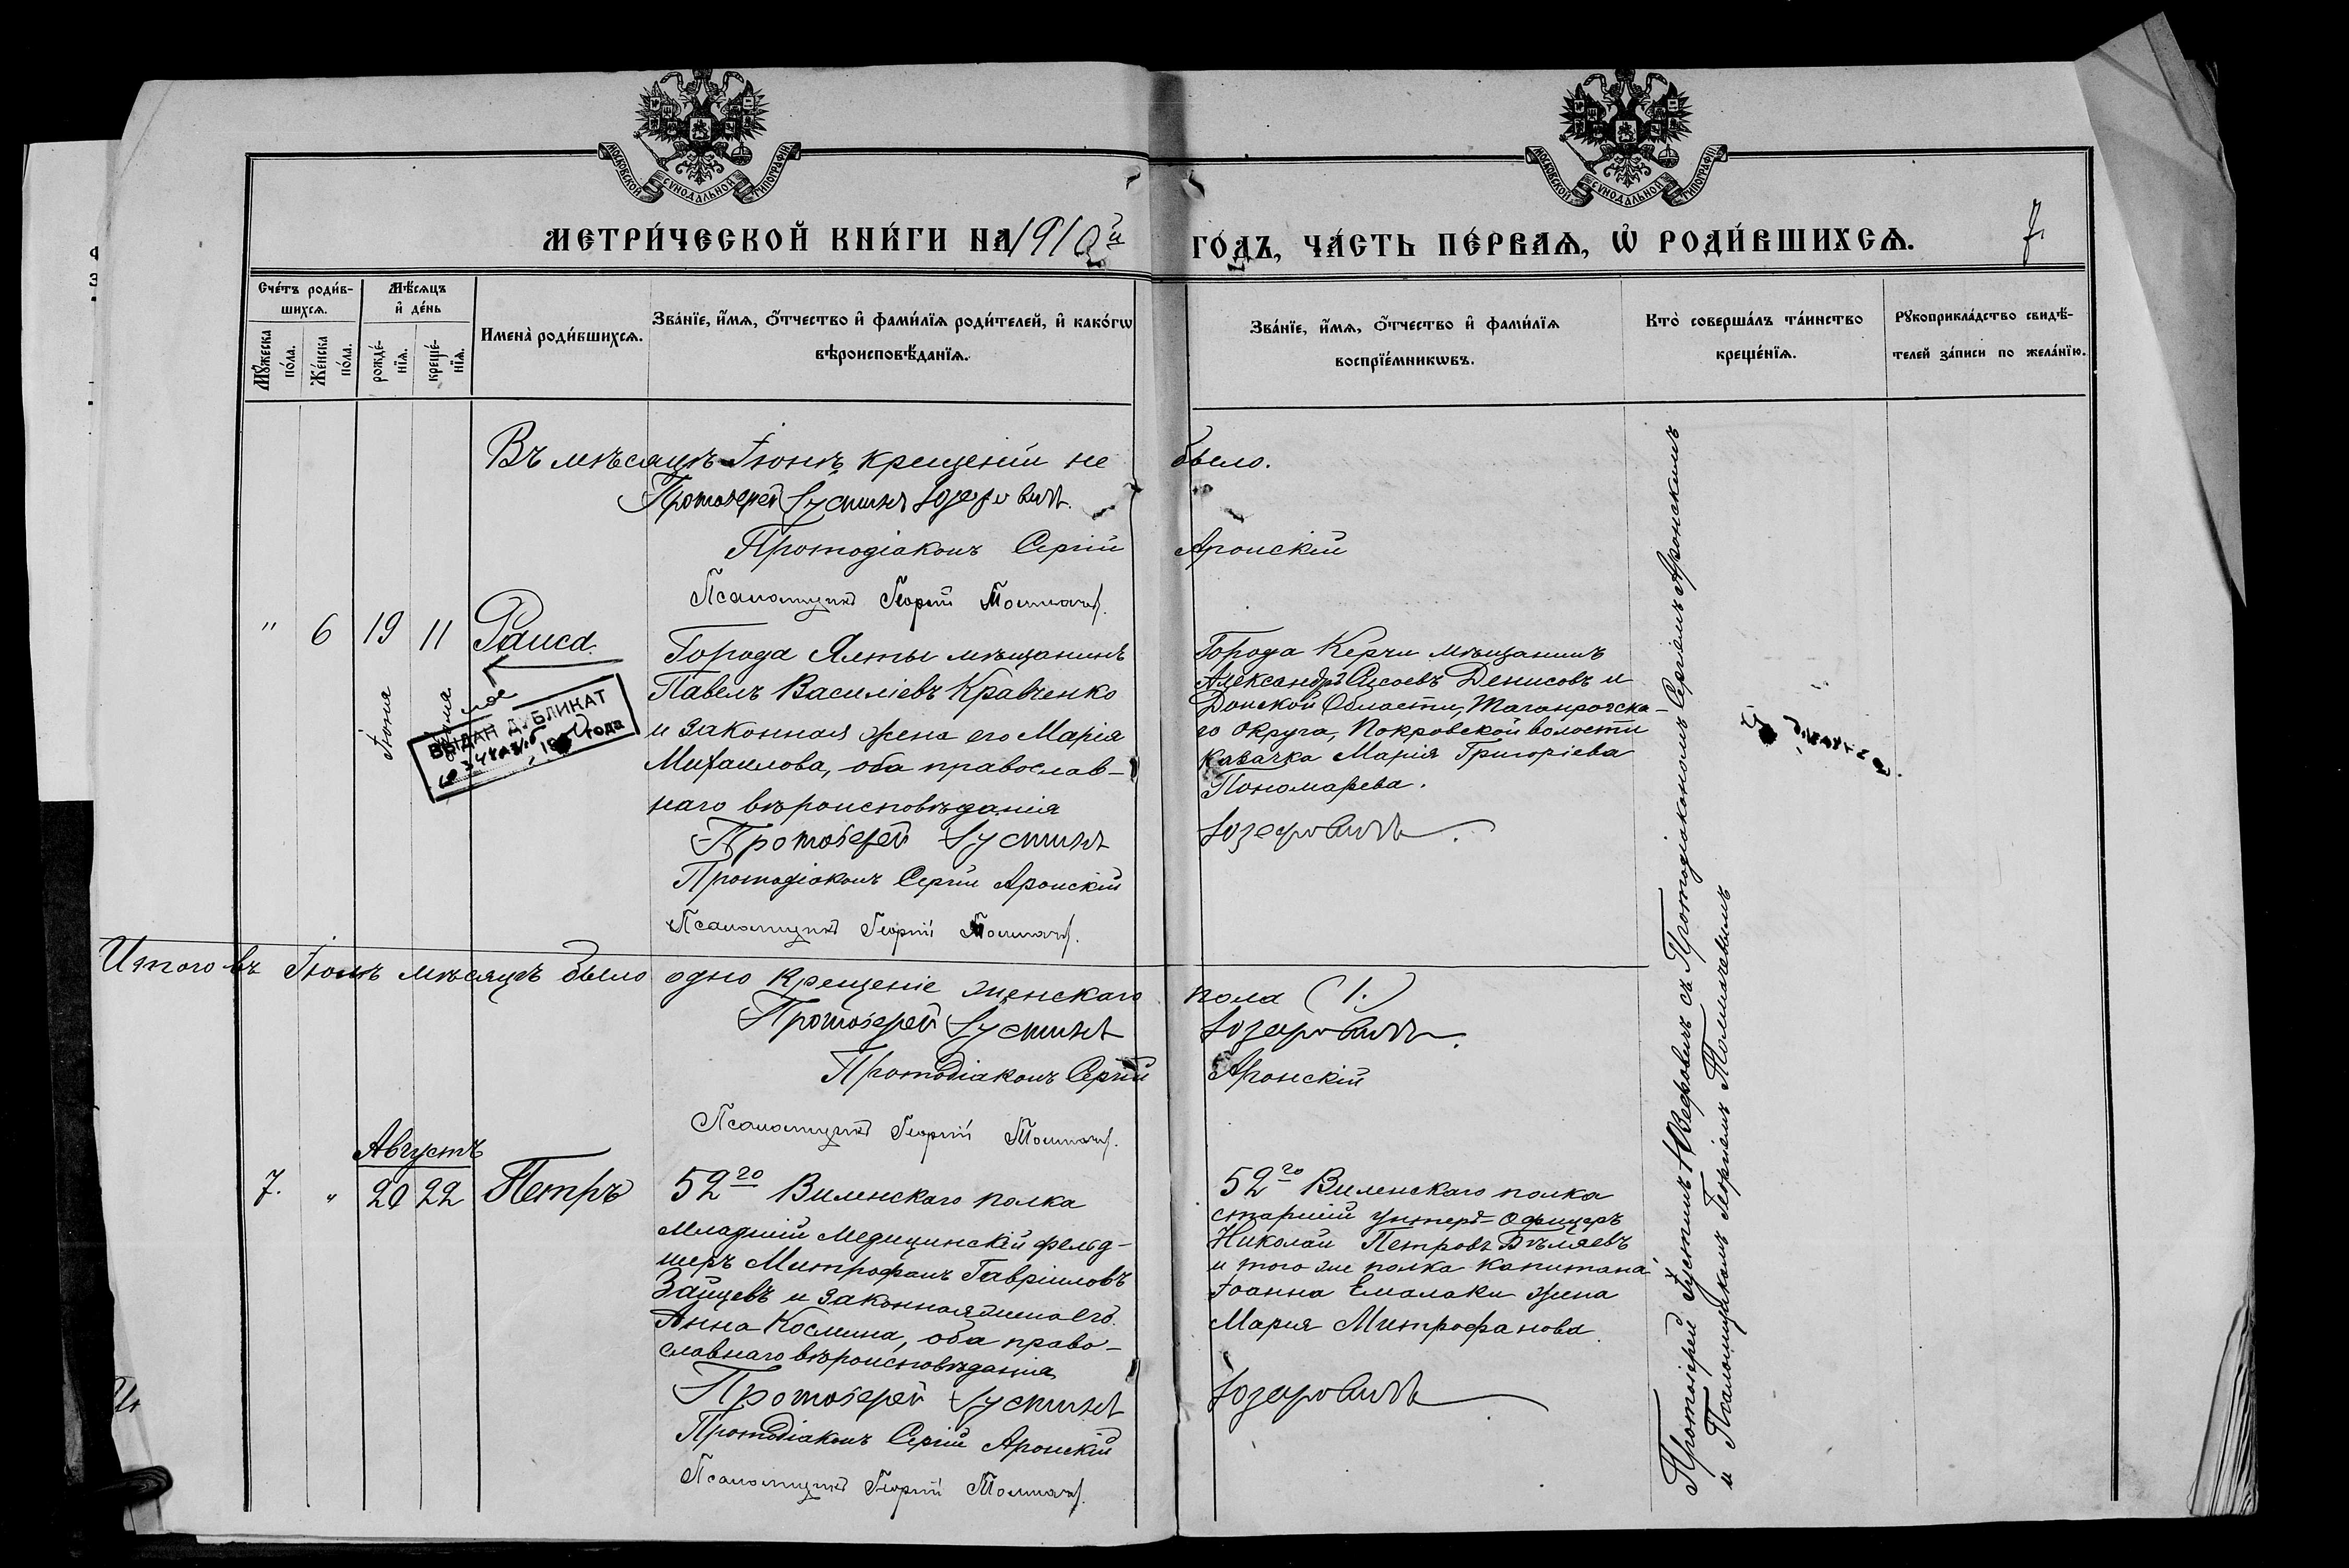 МОСКОВСКОЙ СѴНОДАЛЬНОЙ ТИПОГРАФІИ
МОСКОВСКОЙ СѴНОДАЛЬНОЙ ТИПОГРАФІИ
МЕТРИ́ЧЕСКОЙ КНИ́ГИ НА 1910й ГО́ДЪ, ЧА́СТЬ ПЕ́РВАѦ, Ѡ҆ РОДИ́ВШИХСѦ.
7.
Сче́тъ роди́в-
шихсѧ.
Мꙋ́жеска
по́ла.
Же́нска
по́ла.
Мѣ́сѧцъ
и҆ де́нь
рожде́-
нїѧ.
креще́-
нїѧ.
Имена̀ роди́вшихсѧ.
Зва́нїе, и҆́мѧ, ѻ҆́тчество и҆ фами́лїѧ роди́телей, и҆ како́гѡ
вѣроисповѣ́данїѧ.
Зва́нїе, и҆́мѧ, ѻ҆́тчество и҆ фами́лїѧ
воспрїе́мникѡвъ.
Кто̀ соверша́лъ та́инство
креще́нїѧ.
Рꙋкоприкла́дство свидѣ́-
телей за́писи по жела́нїю.
Въ мѣсяцѣ Іюнѣ крещеній не было.
Протоіерей Іустинъ Іозефовичъ.
Протодіаконъ Сергій Аронскій
Псаломщикъ Георгій Толмачев.
" 6 19 11 Раиса.
Іюня
ВЫДАН ДУБЛИКАТ
года
Города Ялты мѣщанинъ
Павелъ Василіевъ Кравченко
и законная жена его Марія
Михаилова, оба православ-
наго вѣроисповѣданія
Протоіерей Іустинъ
Протодіаконъ Сергій Аронскій
Псаломщикъ Георгій Толмачев.
Города Керчи мѣщанинъ
Александръ Денисовъ и
Донской Области, Таганрогска-
го округа, Покровской волости
казачка Марія Григоріева
Пономарева.
Іозефовичъ.
Итого въ Іюлѣ мѣсяцѣ было одно крещеніе женскаго пола (1.)
Протоіерей Іустинъ Іозефовичъ.
Протодіаконъ Сергій Аронскій
Псаломщикъ Георгій Толмачев.
Августъ
7. " 20 22 Петръ
52го Виленскаго полка
младшій медицинскій фельд-
шеръ Митрофанъ Гавріиловъ
Зайцевъ и законная жена его
Анна Космина, оба право-
славнаго вѣроисповѣданія
Протоіерей Іустинъ
Протодіаконъ Сергій Аронскій
Псаломщикъ Георгій Толмачев.
52го Виленскаго полка
старшій унтеръ-офицеръ
Николай Петровъ Бѣляевъ
и того же полка капитана
Іоанна Емалаки жена
Марія Митрофанова.
Іозефовичъ
Протоіерей Іустинъ Іозефовичъ съ Протодіакономъ Сергіемъ Аронскимъ
и Псаломщикомъ Георгіемъ Толмачевымъ